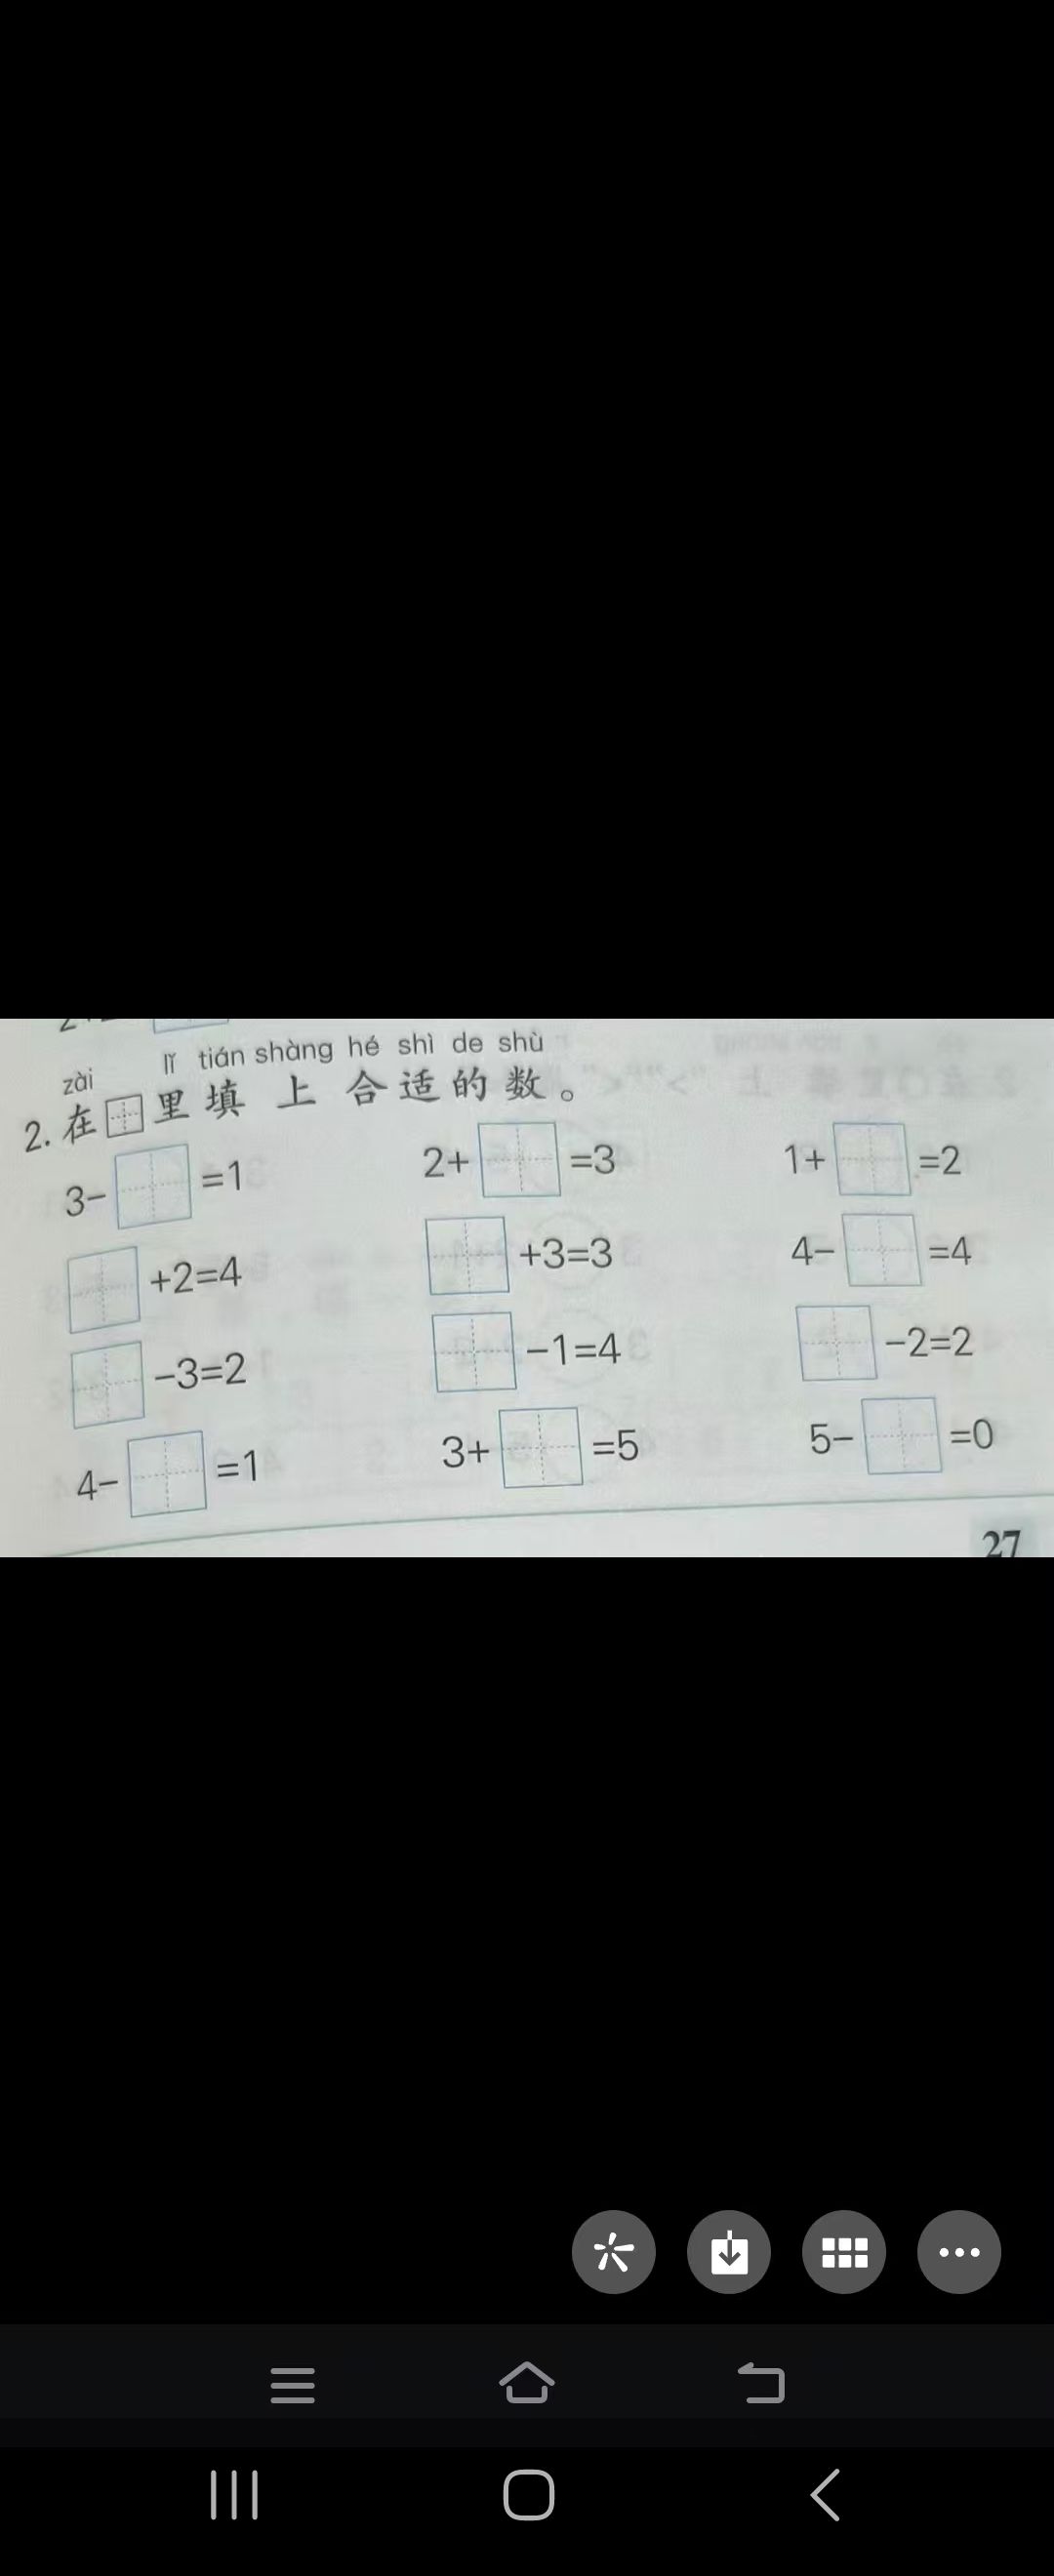 zài lǐ tián shàng hé shì de shù
2. 在□里填上合适的数。
3-□=1 2+□=3 1+□=2
□+2=4 □+3=3 4-□=4
□-3=2 □-1=4 □-2=2
4-□=1 3+□=5 5-□=0
27